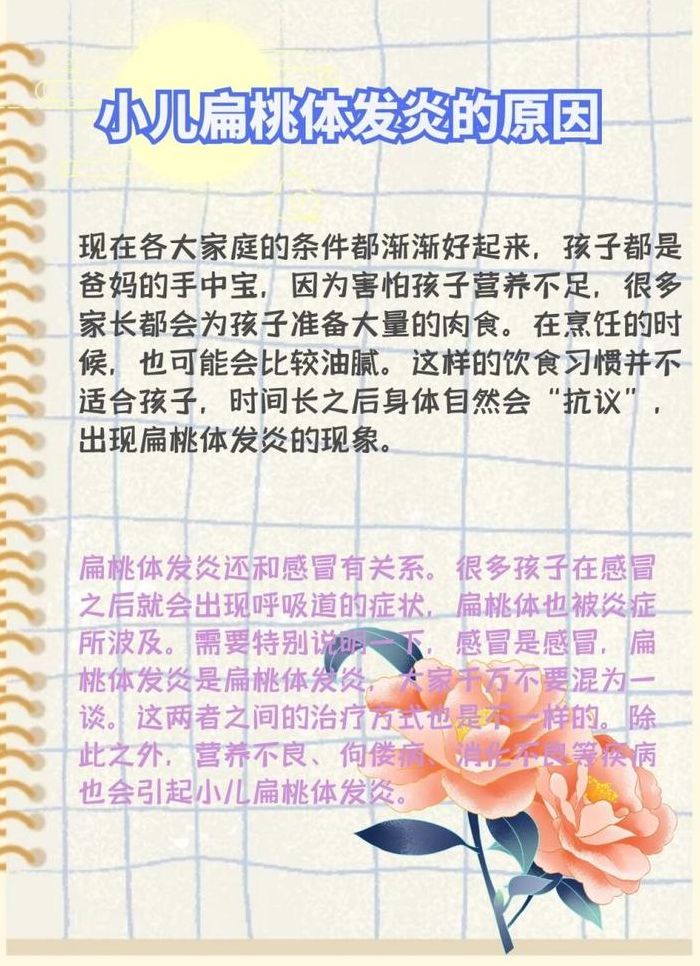 小儿扁桃体发炎的原因
现在各大家庭的条件都渐渐好起来，孩子都是
爸妈的手中宝，因为害怕孩子营养不足，很多
家长都会为孩子准备大量的肉食。在烹饪的时
候，也可能会比较油腻。这样的饮食习惯并不
适合孩子，时间长之后身体自然会“抗议”，
出现扁桃体发炎的现象。
扁桃体发炎还和感冒有关系。很多孩子在感冒
之后就会出现呼吸道的症状，扁桃体也被炎症
所波及。需要特别说明一下，感冒是感冒，扁
桃体发炎是扁桃体发炎，大家千万不要混为一
谈。这两者之间的治疗方式也是不一样的。除
此之外，营养不良、佝偻病、消化不良等疾病
也会引起小儿扁桃体发炎。